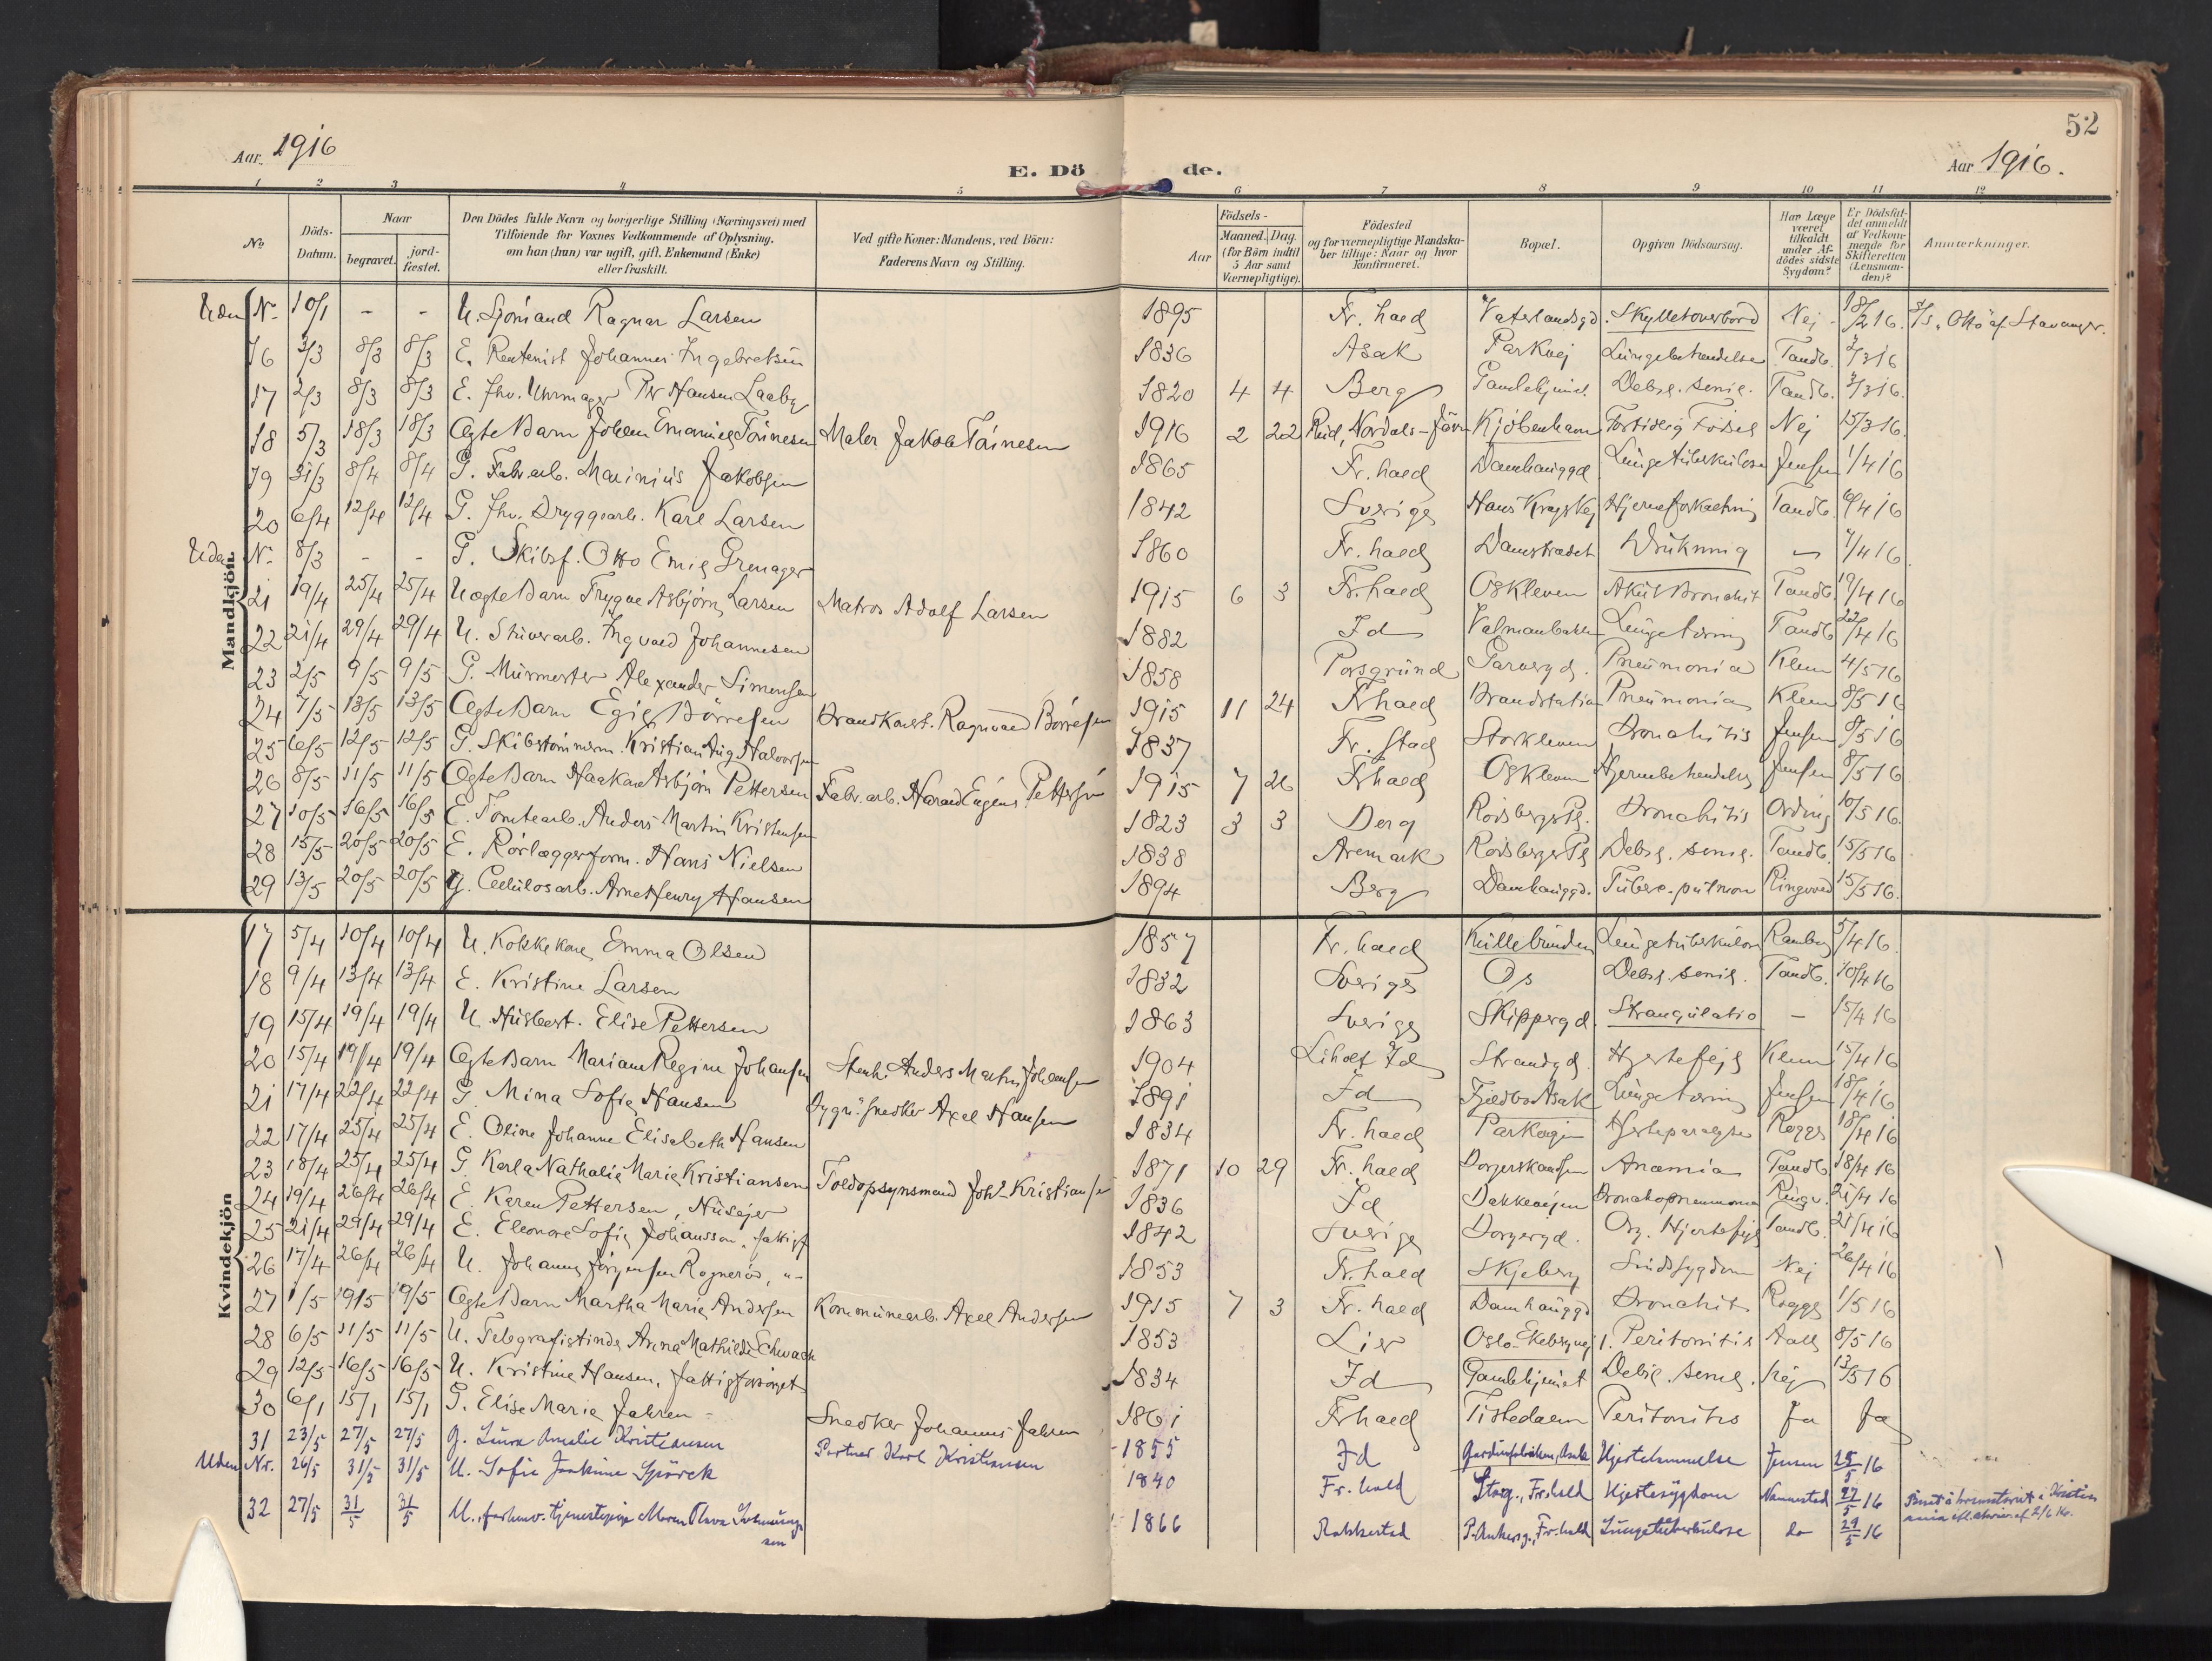 52
Aar 1916
E. Dö de.
Aar 1916.
1 2 3 4 5 6 7 8 9 10 11 12
No
Döds-Datum.
Naar
begravet.
jord-fæstet.
Den Dödes fulde Navn og borgerlige Stilling (Næringsvei) med
Tilföiende for Voxnes Vedkommende af Oplysning,
om han (hun) var ugift, gift, Enkemand (Enke)
eller fraskilt.
Ved gifte Koner: Mandens, ved Börn:
Faderens Navn og Stilling.
Födsels-
Aar
Maaned. Dag.
(for Börn indtil
5 Aar samt
Værnepligtige).
Födested
og for værnepligtige Mandska-
ber tillige: Naar og hvor
konfirmeret.
Bopæl.
Opgiven Dödsaarsag.
Har Læge
været
tilkaldt
under Af-
dödes sidste
Sygdom?
Er Dödsfal-
det anmeldt
af Vedkom-
mende for
Skifteretten
(Lensman-
den)?
Anmærkninger.
Mandkjön.
Uden N. 10/1 - - U. Sjömand Ragnar Larsen 1895 Fr. hald Vaterlandsgd. Skyllet overbord Nej 18/2 16. S/S "Otto" af Stavanger.
16 2/3 8/3 8/3 E. Rentenist Johannes Ingebretsen 1836 Asak Parkvej Lungebetendelse Tandb. 2/3 16
17 2/3 8/3 8/3 E. Fhv. Uhrmager Hansen Laaby 1820 4 4 Berg Gamlehjem. Debil. senil. Tandb. 3/3 16.
18 5/3 18/3 18/3 Ægte Barn Johan Emanuel Tönnesen Maler Jakob Tönnesen 1916 2 22 Kjöbenhavn Fortidlig Födsel Nej 15/3 16.
19 31/3 8/4 8/4 G. Fabr. arb. Marinius Jakobsen 1865 Fr. hald Damhauggd Lungetuberkulose Jensen 1/4 16
20 6/4 12/4 12/4 G. Fhv. Bryggearb. Karl Larsen 1842 Sverige Hans Hjerneforkalkning Tandb. 6/4 16
Uden N. 8/3 - - G. Skibsf. Otto Emil Grenager 1860 Fr. hald Damstrædet Drukning - 7/4 16
21 19/4 25/4 25/4 Uægte Barn Trygve Asbjörn Larsen Matros Adolf Larsen 1915 6 3 Fr. hald Oskleven Akut Bronchit Tandb. 19/4 16
22 21/4 29/4 29/4 U. Stuverarb. Ingvald Johannesen 1882 Id Valmanbakken Lungetæring Tandb 22/4 16
23 2/5 9/5 9/5 G. Murmester Alexander Simensen 1858 Porsgrund Garverg d. Pneumonia Klem 4/5 16
24 7/5 13/5 13/5 Ægte Barn Egil Börresen Brandkonst. Ragnvald Börresen 1915 11 24 Frhald Brandstation Pneumonia Klem 8/5 16
25 6/5 12/5 12/5 G. Skibstömmerm. Kristian Aug. Halvorsen 1837 Fr. stad Storkleven Bronchitis Jensen 8/5 16
26 8/5 11/5 11/5 Ægte Barn Haakon Asbjörn Pettersen Fabr. arb. Harald Eugen Pettersen 1915 7 26 Frhald Oskleven Hjernebetendelse Jensen 8/5 16
27 10/5 16/5 16/5 E. Tomtearb. Anders Martin Kristensen 1823 3 3 Berg Rödsberg Pl. Bronchitis Ording 10/5 16.
28 15/5 20/5 20/5 E. Rörlæggerform. Hans Nielsen 1838 Aremark Rödsberg Pl Debil. senil. Tandb. 15/5 16
29 13/5 20/5 20/5 G. Cellulosarb. Arne Henry Hansen 1894 Berg Damhauggd. Tuberc. pulmon Ringvold 15/5 16.
Kvindekjön
17 5/4 10/4 10/4 U. Kokkekone Emma Olsen 1857 Fr. hald Kullebunden Lungetuberkulose 5/4 16.
18 9/4 13/4 13/4 E. Kristine Larsen 1832 Sverige Os Debil. senil. Tandb. 10/4 16
19 15/4 19/4 19/4 U. Husbest. Elise Pettersen 1863 Sverige Skippergd. Strangulatio - 15/4 16
20 15/4 19/4 19/4 Ægte Barn Mariane Regine Johansen Stenh. Anders Martin Johansen 1904 Liholt Id Strandgd. Hjertefejl Klem 15/4 16
21 17/4 22/4 22/4 G. Mina Sofie Hansen Bygn. snedker Axel Hansen 1891 Id Fjeldbo Asak Lungetæring Jensen 18/4 16
22 17/4 25/4 25/4 E. Oline Johanne Elisabeth Hansen 1834 Fr. hald Parkvejen Hjerteparalyse Rogge 18/4 16
23 18/4 25/4 25/4 G. Karla Nathalie Marie Kristiansen Toldopsynsmand Johs. Kristiansen 1871 10 29 Fr. hald Borgerskansen Anæmia Tandb 18/4 16
24 19/4 26/4 26/4 E. Karen Pettersen, Husejer 1836 Id Bakkevejen Bronchopneumonia Ringv. 21/4 16
25 21/4 29/4 29/4 E. Eleonore Sofie Johansson, fattigf 1842 Sverige Borgergd. Org. Hjertefejl Tandb. 25/4 16
26 17/4 26/4 26/4 U. Johanne Jörgensen Rognerös, "- 1853 Fr. hald Skjeberg Sindssygdom Nej 26/4 16
27 1/5 1915 19/5 Ægte Barn Martha Marie Andersen Kommunearb. Axel Andersen 1915 7 3 Fr. hald Damhauggd Bronchit Rogge 1/5 16
28 6/5 11/5 11/5 U. Telegrafistinde Anna Mathilde Schwach 1853 Lier Oslo Ekebergvej 1. Peritonitis Aall 8/5 16
29 12/5 16/5 16/5 U. Kristine Hansen, fattigforsörget 1834 Id Gamlehjemet Debil. senil. Nej 13/5 16
30 6/1 15/1 15/1 G. Elise Marie Jahren - Snedker Johannes Jahren 1861 Frhald Tistedalen Peritonitis Ja Ja
31 23/5 27/5 27/5 G. Laura Amalie Kristiansen Portner Karl Kristiansen 1855 Id Gardinfabriken, Asak Hjertelammelse Jensen 25/5 16
Uden Nr. 26/5 31/5 31/5 U. Sofie Joakime Spörck 1840 Fr. hald Storg., Fr. hald Hjertesygdom Nannestad 27/5 16 Brændt i krematoriet i Kristiania 2/6 16.
32 27/5 31/5 31/5 U. forhenv. tjenestepige Maren Olava 1866 Rakkestad P. Ankersg., Fr. hald Lungetuberkulose do 29/5 16